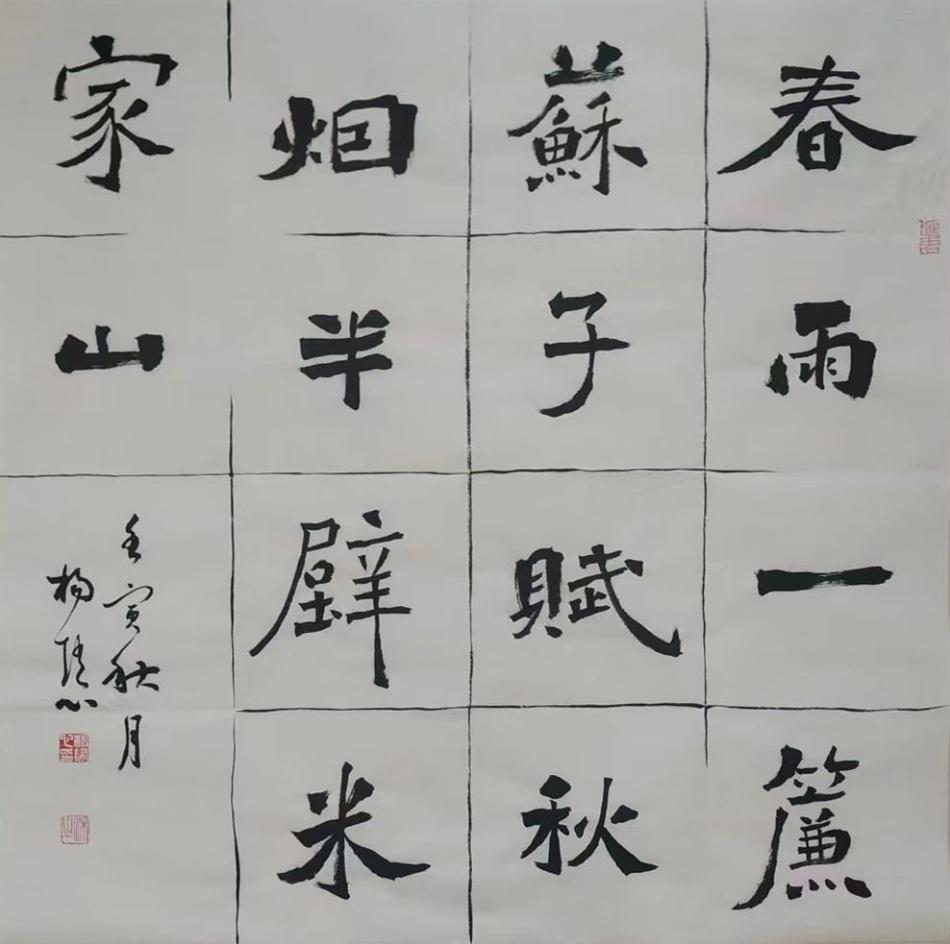 春雨一簾
蘇子賦秋
烟半壁米
家山
壬寅秋月
楊